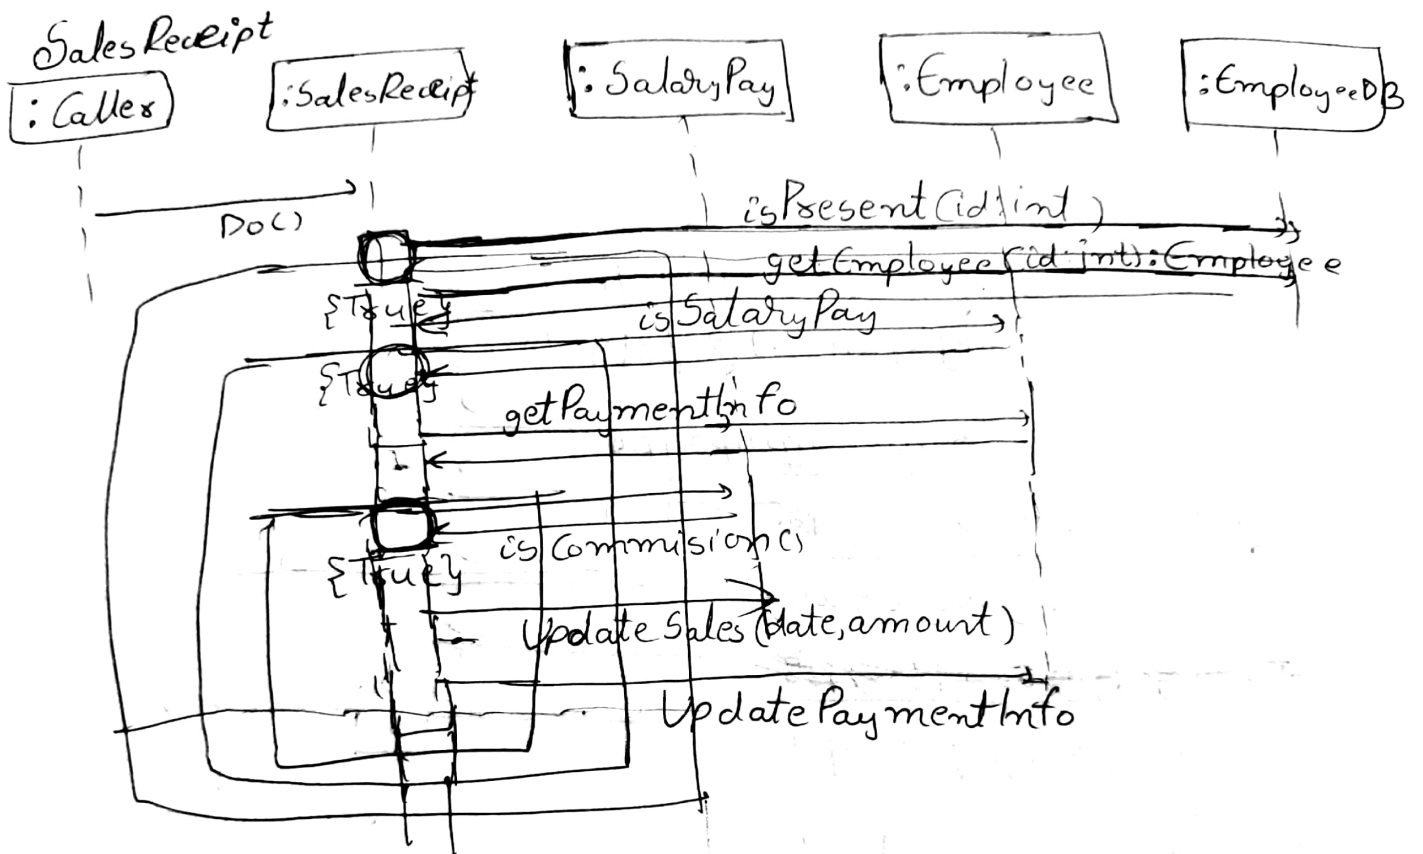 SalesReceipt
:Caller
:SalesReceipt
:SalaryPay
:Employee
:EmployeeDB
Do()
isPresent(id:int)
getEmployee(id:int):Employee
{True}
isSalaryPay
{True}
getPaymentInfo
isCommision()
{True}
UpdateSales(date,amount)
UpdatePaymentInfo